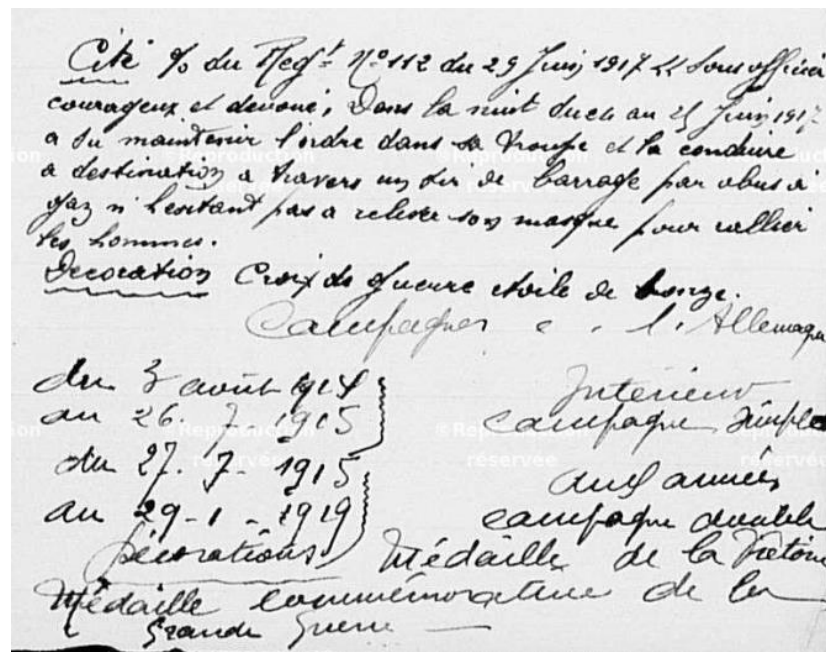 Cité % du Regt N° 112 du 29 Juin 1917 << Sous officier
courageux et devoué, Dans la nuit du 24 au 25 Juin 1917
a su maintenir l'ordre dans sa troupe et la conduire
a destination a travers un tir de barrage par obus à
gaz n'hesitant pas a relever son masque pour rallier
ses hommes.
Decoration Croix de guerre etoile de bronze.
Campagnes c. l'Allemagne
du 3 août 1914
au 26. 7. 1915
Interieur
campagne simple
du 27. 7. 1915
au 29-1-1919
aux armées
campagne double
Décorations Médaille de la Victoire
Médaille commémorative de la
Grande Guerre
©Reproduction réservée